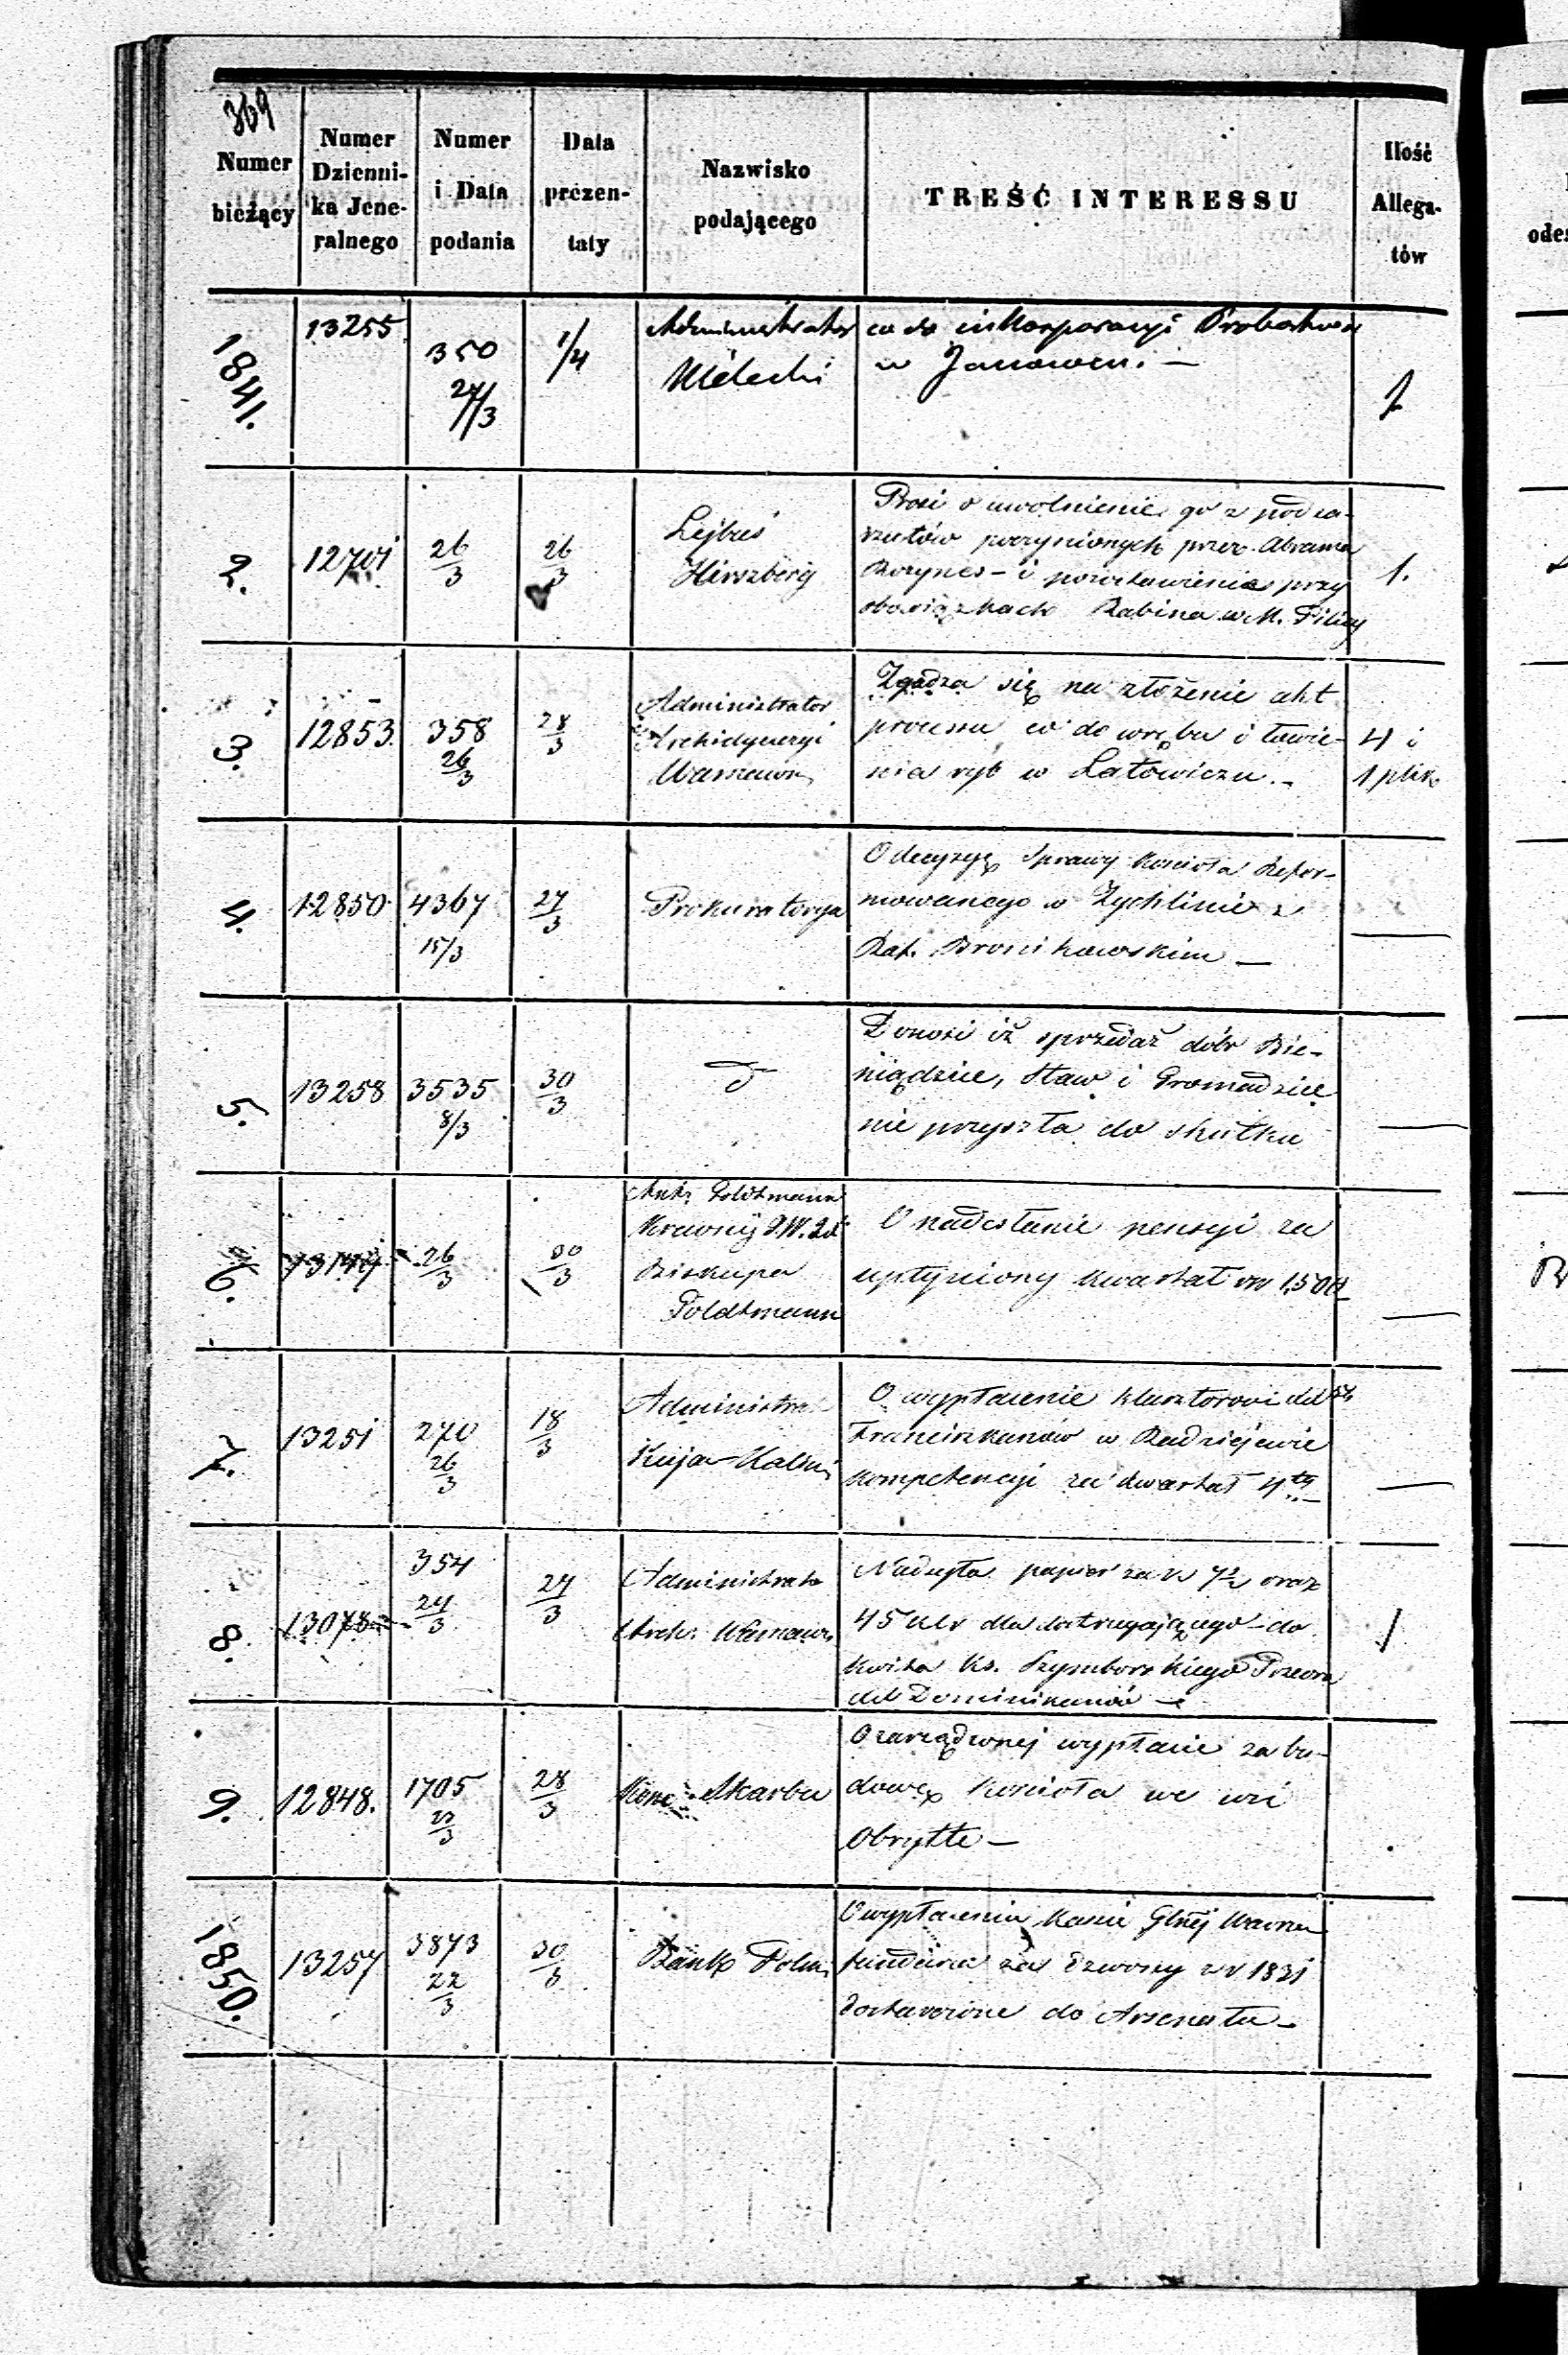 369
Numer bieżący
Numer Dzienni- ka Jene- ralnego
Numer i Data podania
Data prezen- taty
Nazwisko podającego
TREŚĆ INTERESSU
Ilość Allega- tów
1841.
13255
350
27/3
1/4
Administrator
co do inkorporacyi Probostwa
w Janowcu. —
1
2.
12701
26/3
26/3
Lejbuś
Hirszberg
Prosi o uwolnienie go z pod za-
rzutów poczynionych przez Abrama
i pozostawienie przy
obowiązkach Rabina w M. Pilicy
1.
3.
12853.
358
26/3
28/3
Administrator
Archidyecezyi
Warszaws.
Zgadza się na złożenie akt
processu co do wrębu i łowie-
nia ryb w Latowiczu. –
4 i
1 plik
4.
12850
4367
15/3
27/3
Prokuratorya
O decyzyę sprawy kościoła Refor-
mowanego w Żychlinie z
Raf. Bronikowskim —
5.
13258
3535
8/3
30/3
d
Donosi iż sprzedaż dóbr Bie-
niądzice, Staw i Gromadzice
nie przyszła do skutku
6.
26/3
30/3
Ant. Goldtmann
Krewny J.W. Xd
Biskupa
Goldtmann
O nadesłanie pensyi za
upłyniony kwartał rsr 150
7.
13251
270
26/3
18/3
Administra
Kuja-Kalis.
O wypłacenie klasztorowi
Franciszkanów w Radziejewie
kompetencyi za kwartał 4ty
8.
13078
354
24/3
27/3
Administrato
Arch. Warszaws.
Nadsyła papier za 7½ oraz
45 dla dostrzegającego do
kwita Ks. Szymborskiego Przeora
Dominikanów –
1
9.
12848.
1705
28/3
Skarbu
O zarządzonej wypłacie za bu-
dowę kościoła we wsi
Obrytte –
1850.
13257
3873
22/3
30/3
Bank Polski
O wypłacenia Kassie Głnej Warsza
fundusza za dzwony w r 1831
dostawione do Arsenału –